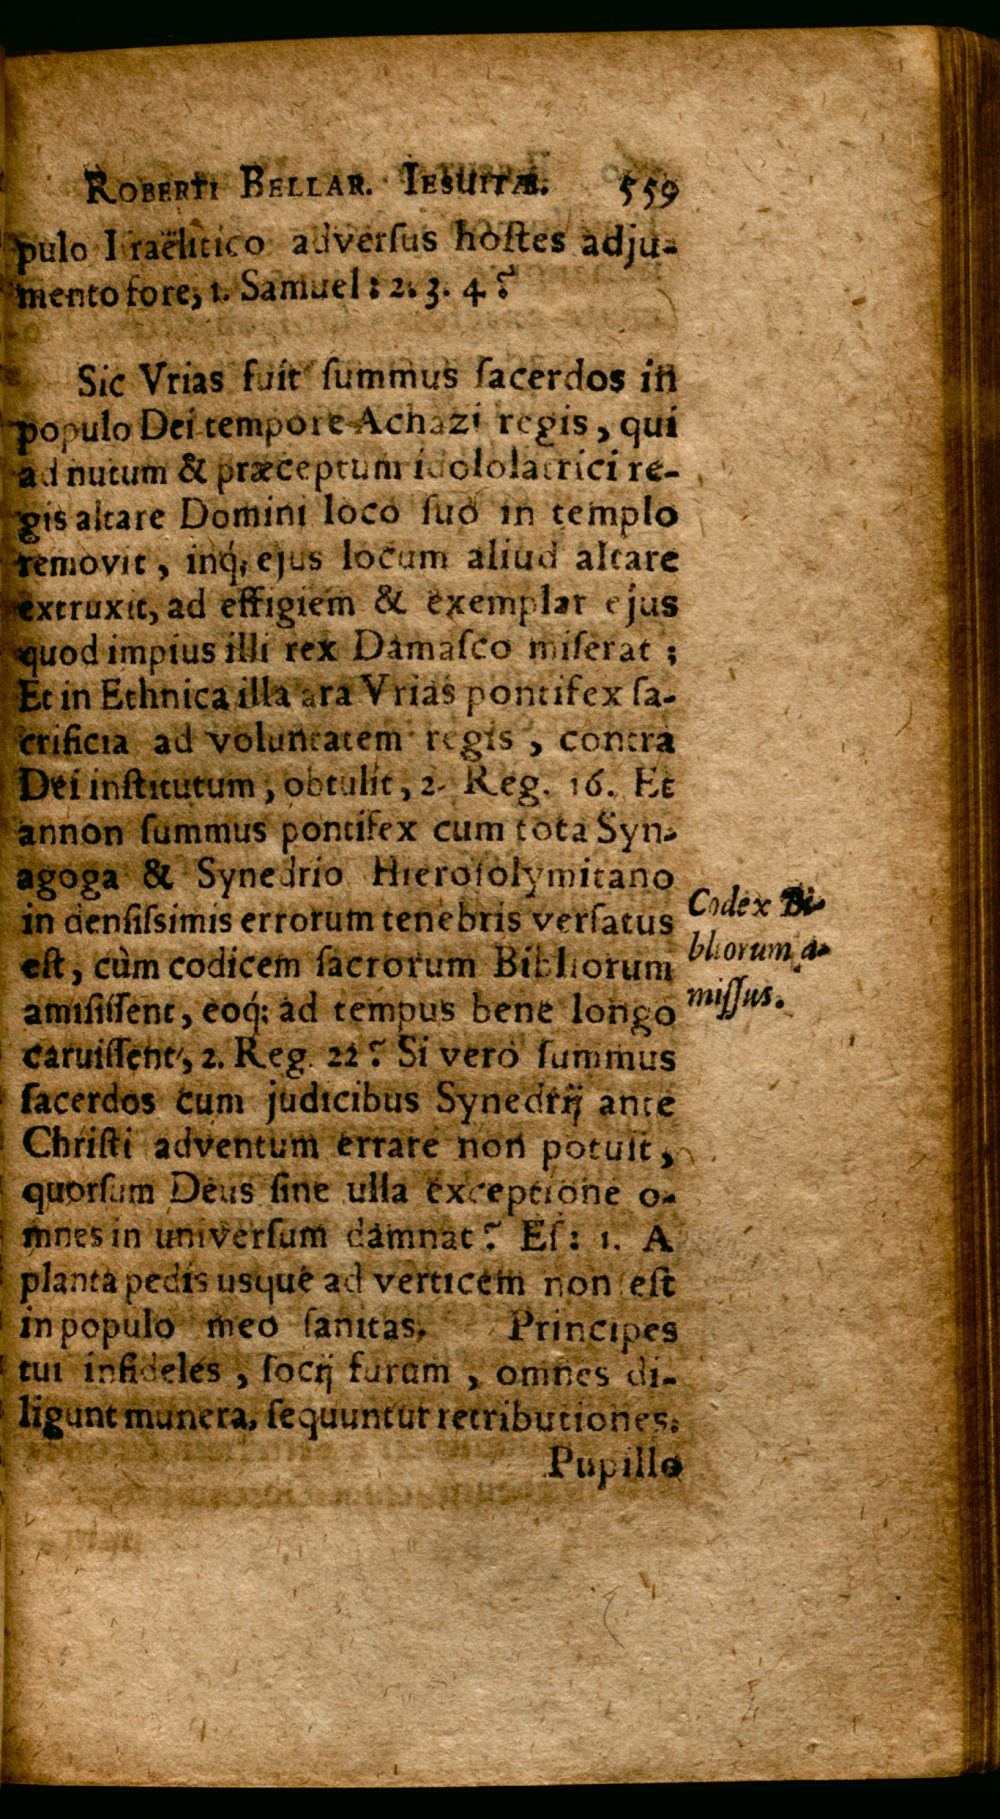 ROBERTI BELLAR. IESUITÆ. 559
pulo Iſraëlitico adverſus hoſtes adju-
mento fore, 1. Samuel: 2. 3. 4?
Sic Vrias fuit ſummus ſacerdos in
populo Dei tempore Achazi regis, qui
ad nutum & præceptum idololatrici re-
gis altare Domini loco ſuo in templo
removit, inq́; ejus locum aliud altare
extruxit, ad effigiem & exemplar ejus
quod impius illi rex Damaſco miſerat;
Et in Ethnica illa ara Vrias pontifex ſa-
crificia ad voluntatem regis, contra
Dei inſtitutum, obtulit, 2. Reg. 16. Et
annon ſummus pontifex cum tota Syn-
agoga & Synedrio Hieroſolymitano
in denſiſsimis errorum tenebris verſatus
eſt, cùm codicem ſacrorum Bibliorum
amiſiſſent, eoq́; ad tempus bene longo
caruiſſent, 2. Reg. 22? Si vero ſummus
ſacerdos cum judicibus Synedrĳ ante
Chriſti adventum errare non potuit,
quorſum Deus ſine ulla exceptione o-
mnes in univerſum damnat? Eſ: 1. A
planta pedis usque ad verticem non eſt
in populo meo ſanitas. Principes
tui infideles, ſocĳ furum, omnes di-
ligunt munera, ſequuntur retributiones.
Pupillo
Codex Bi-
bliorum a-
miſſus.